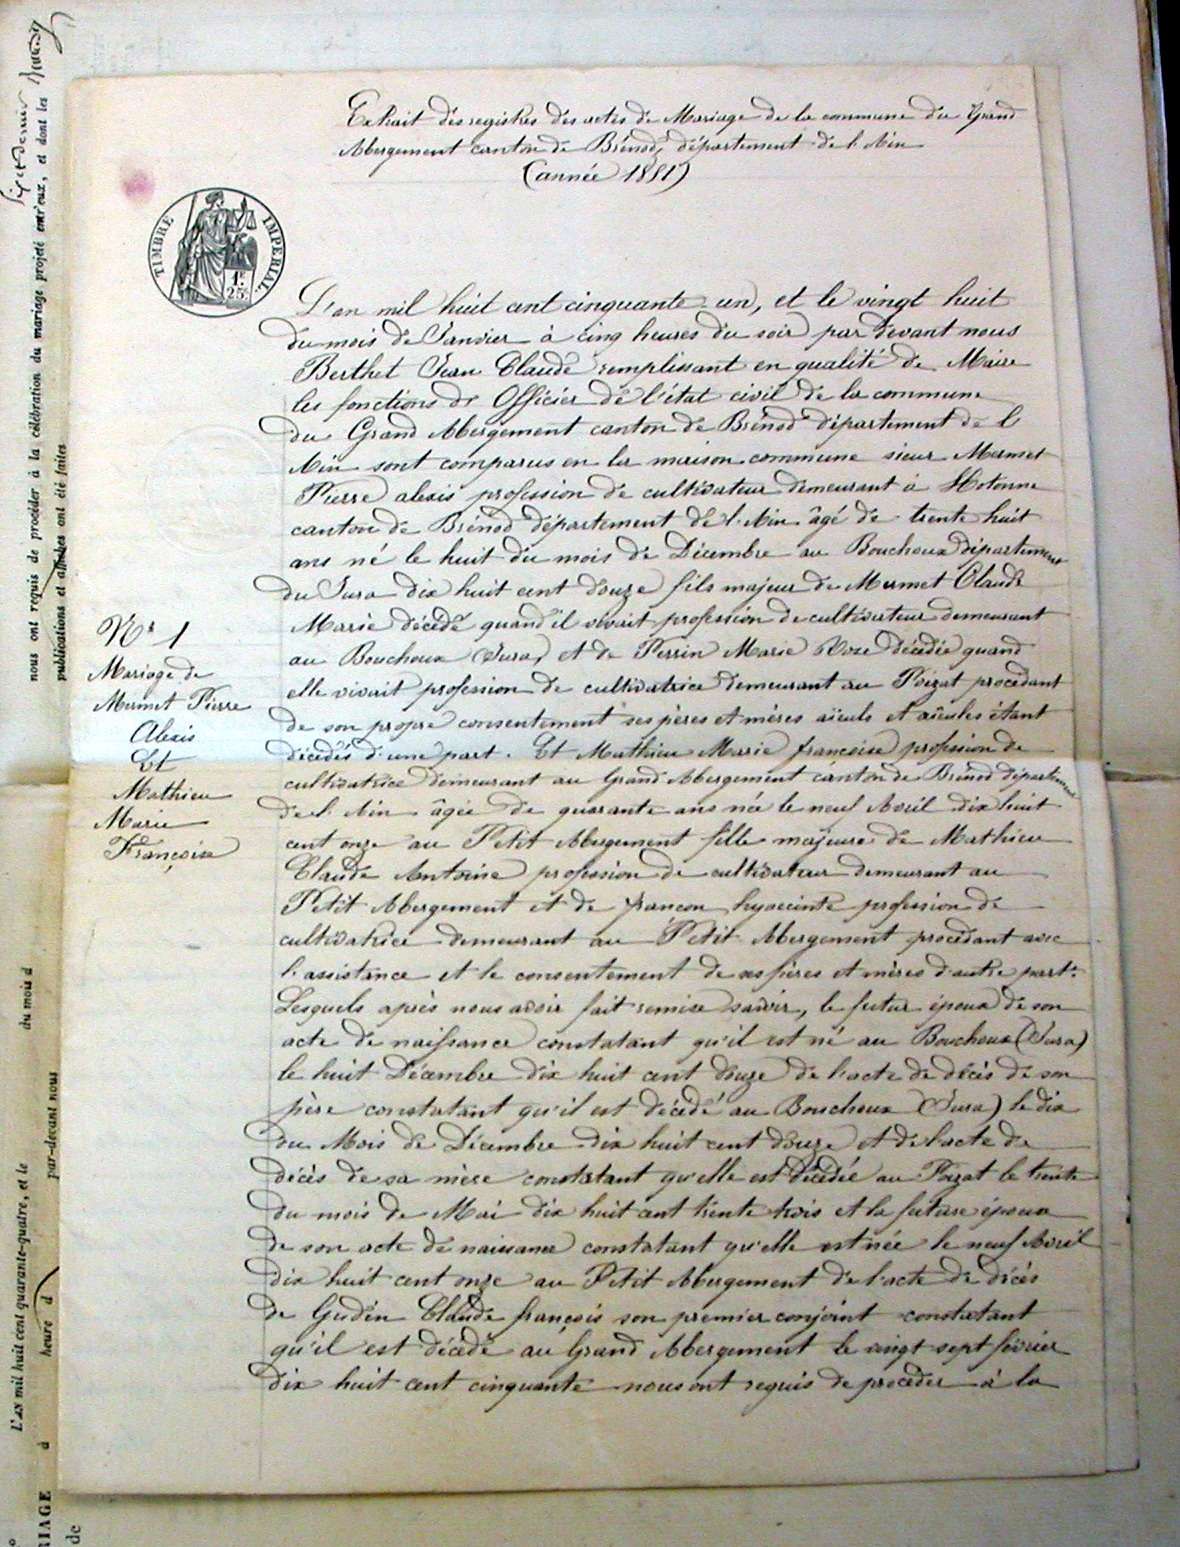 Extrait des registres des actes de Mariage de la commune du Grand
Abergement canton de Brénod, département de l'Ain
(année 1851)
TIMBRE IMPERIAL
1F
25c
L'an mil huit cent cinquante-un, et le vingt huit
du mois de Janvier à cinq heures du soir par devant nous
Berthet Jean Claude remplissant en qualité de Maire
les fonctions de Officier de l'état civil de la commune
du Grand Abergement canton de Brénod département de l'
Ain sont comparus en la maison commune sieur Mermet
Pierre alexis profession de cultivateur demeurant à Hotonne
canton de Brénod département de l'Ain âgé de trente huit
ans né le huit du mois de Décembre au Bouchoux département
du Jura dix huit cent douze fils majeur de Mermet Claude
Marie décédé quand il vivait profession de cultivateur demeurant
au Bouchoux (Jura) et de Perrin Marie Roze décédée quand
elle vivait profession de cultivatrice demeurant au Poizat procédant
de son propre consentement ses pères et mères aïeuls et aïeules étant
décédés d'une part. Et Mathieu Marie françoise profession de
cultivatrice demeurant au Grand Abergement canton de Brénod département
de l'Ain âgée de quarante ans née le neuf Avril dix huit
cent onze au Petit Abergement fille majeure de Mathieu
Claude Antoine profession de cultivateur demeurant au
Petit Abergement et de francon hyacinte profession de
cultivatrice demeurant au Petit Abergement procédant avec
l'assistance et le consentement de ses pères et mères d'autre part.
Lesquels après nous avoir fait remise savoir, le futur époux de son
acte de naissance constatant qu'il est né au Bouchoux (Jura)
le huit Décembre dix huit cent douze de l'acte de décès de son
père constatant qu'il est décédé au Bouchoux (Jura) le dix
du Mois de Décembre dix huit cent douze et de l'acte de
décès de sa mère constatant qu'elle est décédée au Poizat le trente
du mois de Mai dix huit cent trente trois et la future épouse
de son acte de naissance constatant qu'elle est née le neuf Avril
dix huit cent onze au Petit Abergement de l'acte de décès
de Gudin Claude françois son premier conjoint constatant
qu'il est décédé au Grand Abergement le vingt sept février
dix huit cent cinquante nous ont requis de procéder à la
N° 1
Mariage de
Mermet Pierre
Alexis
Et
Mathieu
Marie
Françoise
nous ont requis de procéder à la célébration du mariage projeté entr'eux, et dont les
publications et affiches ont été faites
L'AN mil huit cent quarante-quatre, et le du mois d
heure d par-devant nous
RIAGE d
de